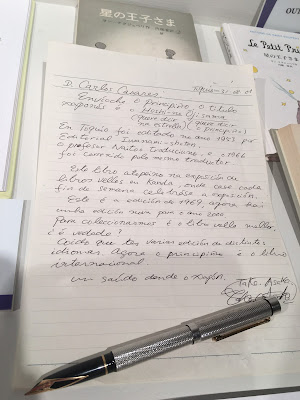 星の王子さま
Le Petit Prin
D. Carlos Casares
Envíoche o principiño, o título
xaponés é o Hoshi-no Oji-sama
(quere dicir (quere dicir
na estrella) (o principiño)
En Toquio foi editado no ano 1953 por
Editorial Iwanami-shoten.
o profesor Naito traduciuno, e o 1966
foi corrixido polo mesmo tradutor.
Este libro atopeino na exposición de
libros vellos en Kanda, onde case cada
fin de semana celebrase a exposición.
Este é a edición de 1969, agora hai
unha edición nova para o ano 2000
Para coleccionarmos é o libro vello mellor,
é verdade?
Coido que ten varias edición de distintos
idiomas. Agora o principiño é o libro
internacional
un saúdo dende o Xapón.